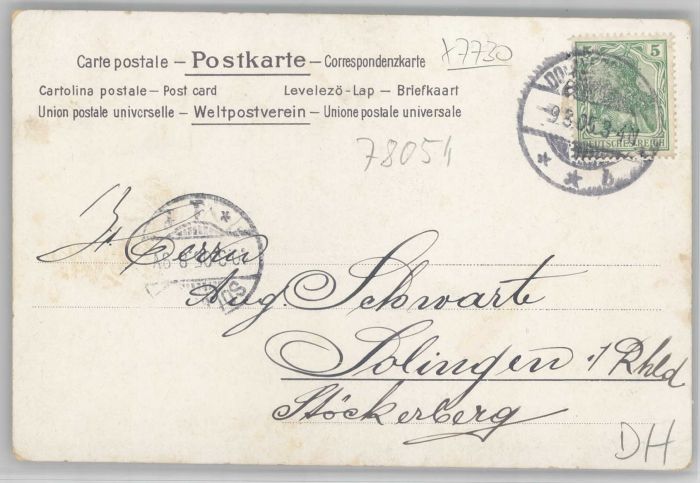 Carte postale – Postkarte – Correspondenzkarte
Cartolina postale – Post card Levelezö-Lap – Briefkaart
Union postale universelle – Weltpostverein – Unione postale universale
x7730
5
9.8.05.3-4N
* * b
DEUTSCHES REICH
78051
* F *
Herrn
Aug. Schwarte
Solingen i/Rhld
Stöckerberg
DH